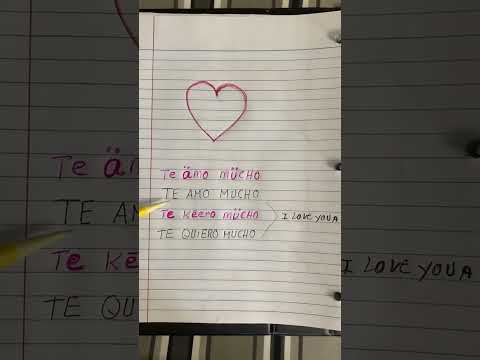 Te ämo mücho
TE AMO MUCHO
Te kēēro mücho
TE QUIERO MUCHO
I LOVE YOU A